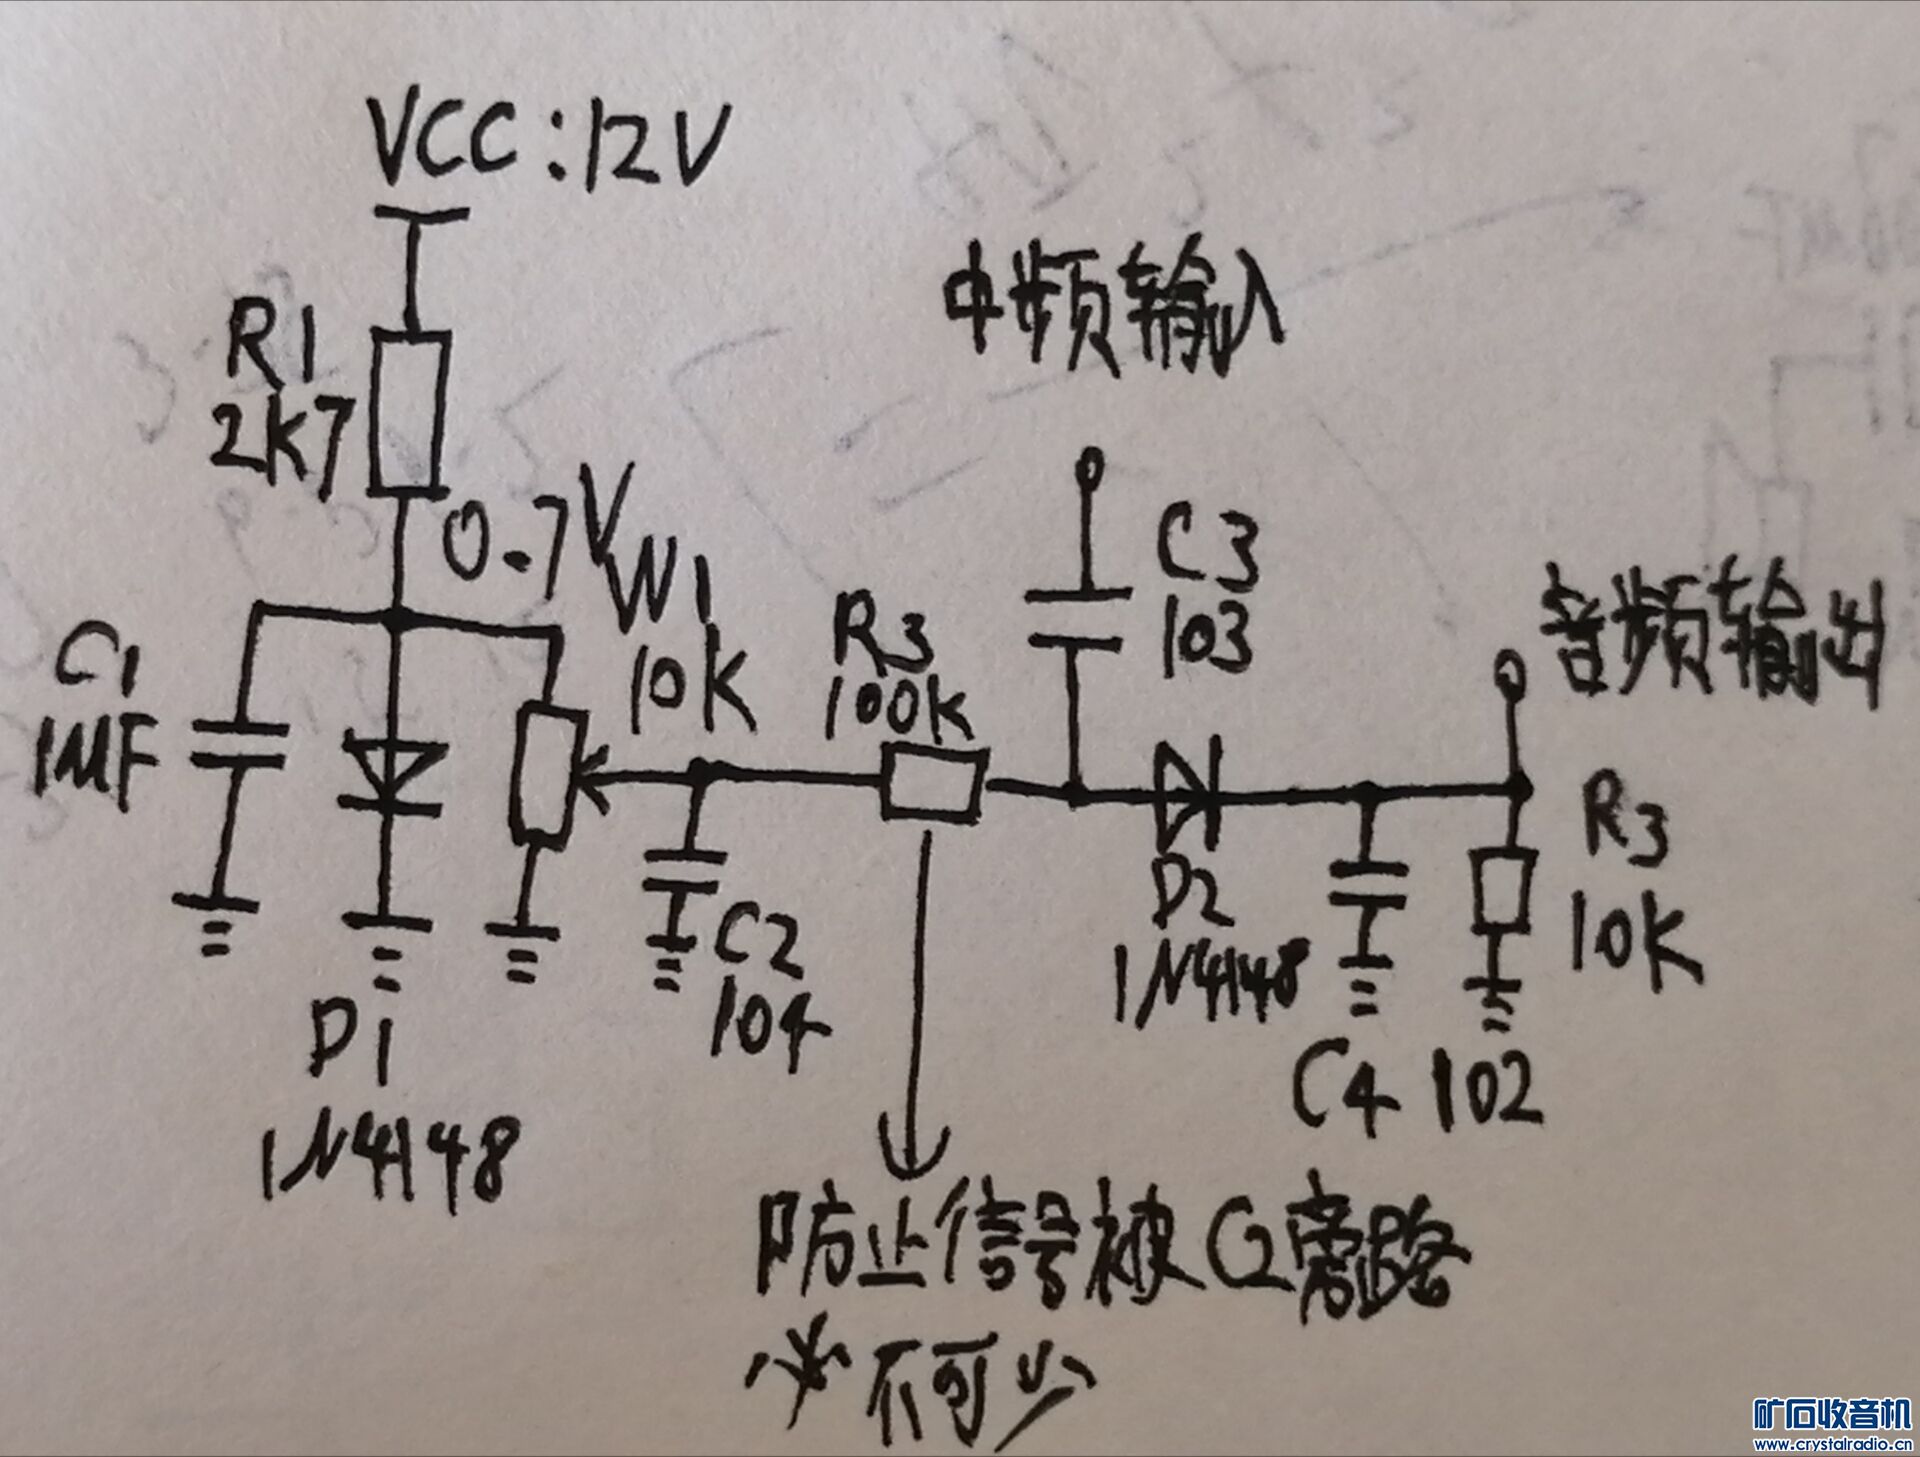 VCC:12V
中频输入
R1
2K7
0.7V
W1
10K
C1
1MF
R3
100K
C3
103
音频输出
D2
1N4148
R3
10K
C2
104
D1
1N4148
C4 102
防止信号被C2旁路
必不可少
矿石收音机
www.crystalradio.cn